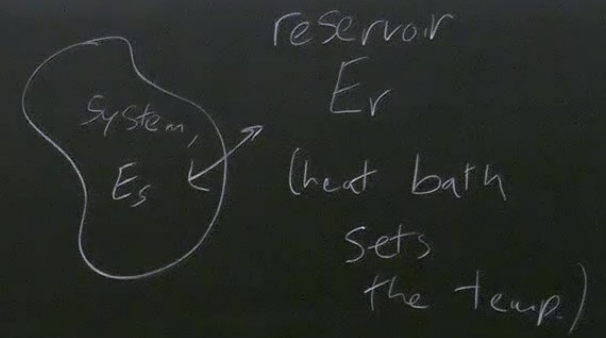 system,
Es
reservoir
Er
(heat bath
sets
the temp.)